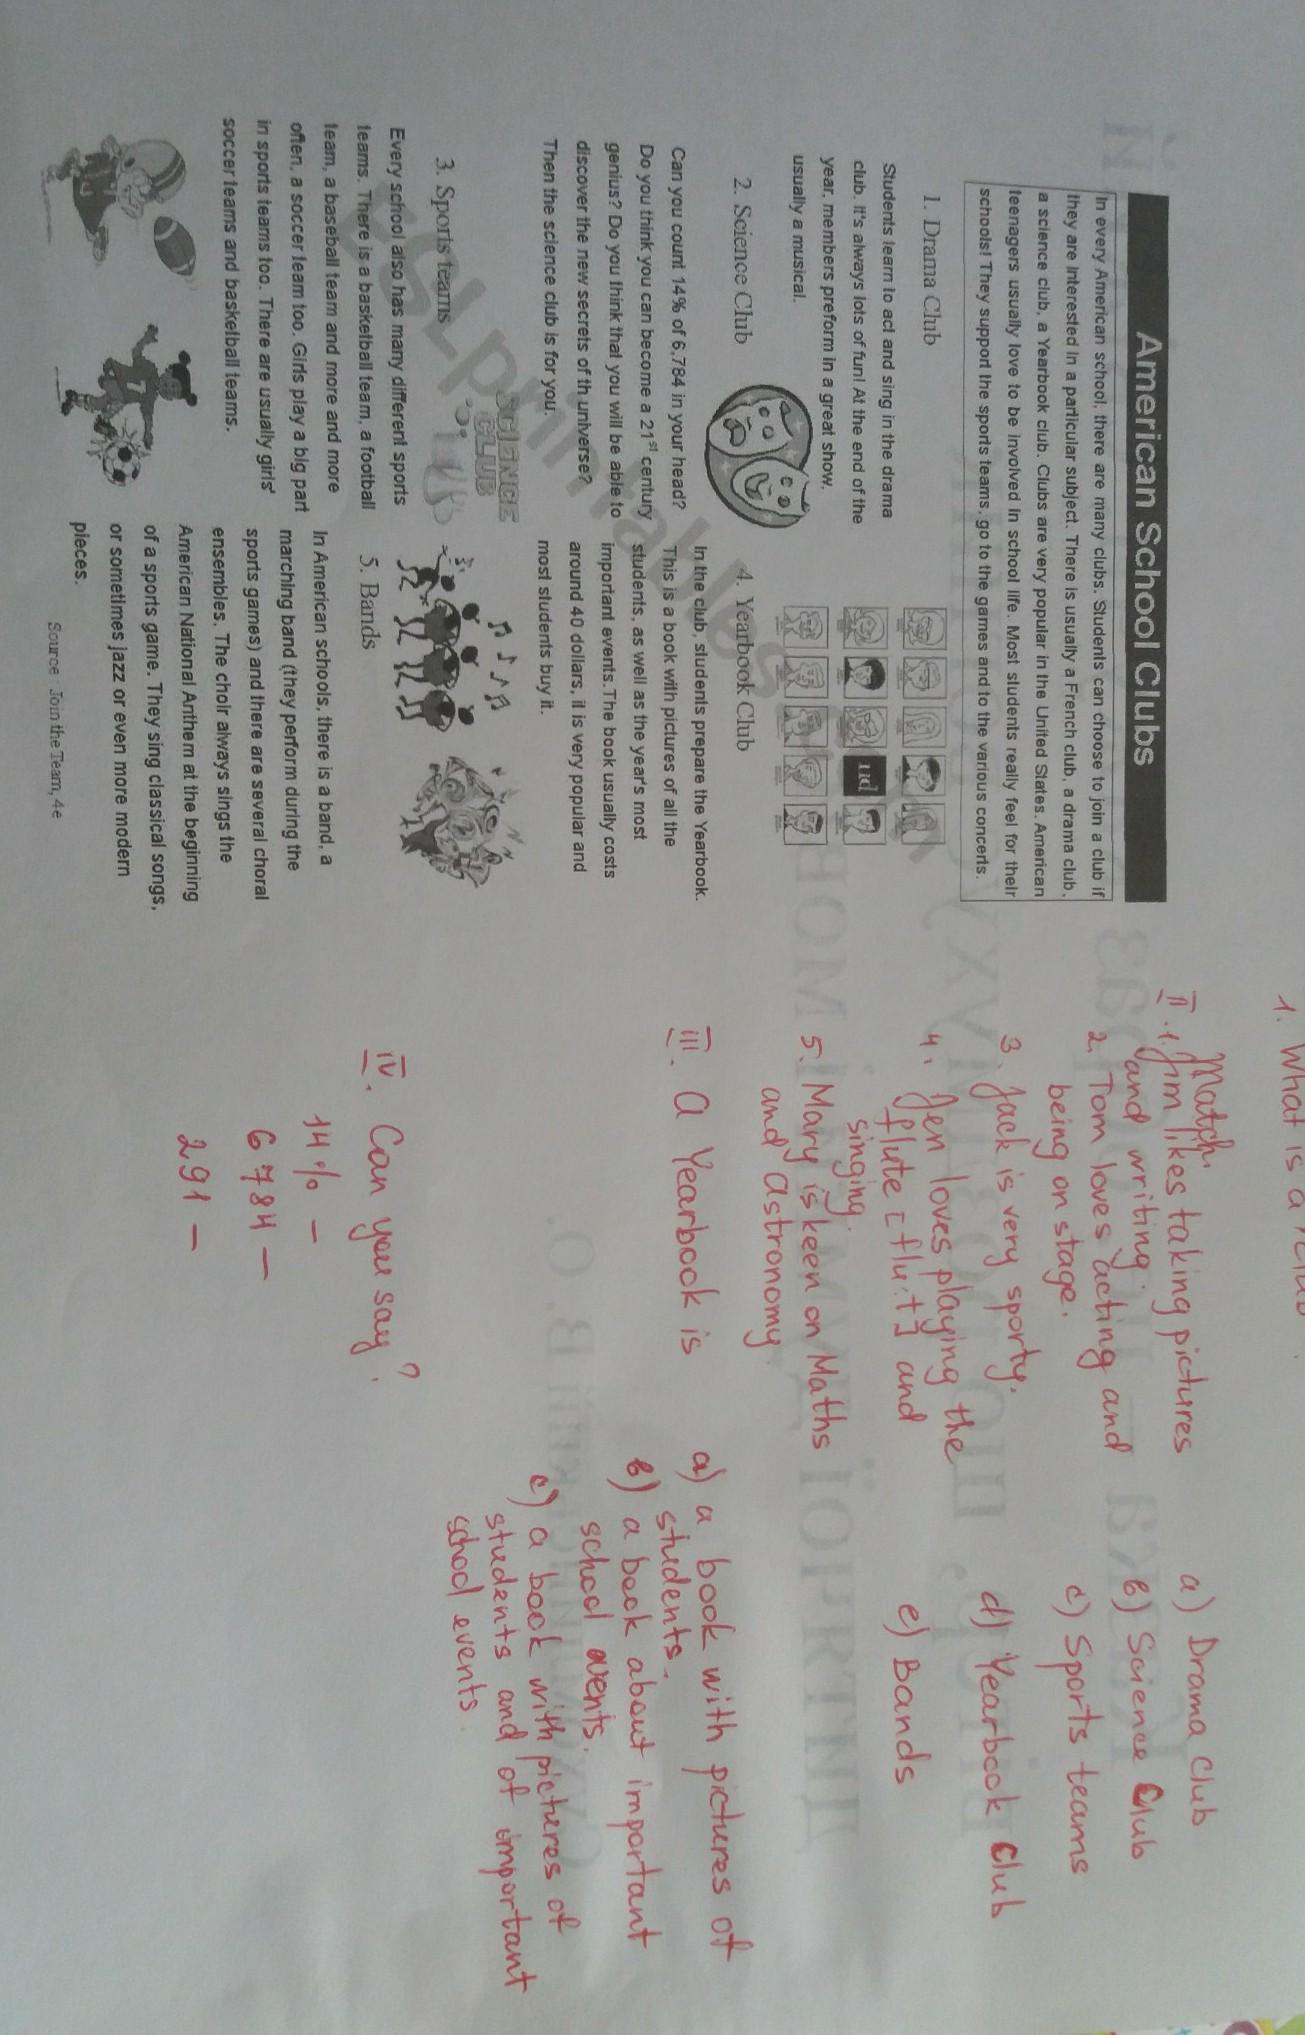 American School Clubs
In every American school, there are many clubs. Students can choose to join a club if
they are interested in a particular subject. There is usually a French club, a drama club,
a science club, a Yearbook club. Clubs are very popular in the United States. American
teenagers usually love to be involved in school life. Most students really feel for their
schools! They support the sports teams, go to the games and to the various concerts.
1. Drama Club
Students learn to act and sing in the drama
club. It's always lots of fun! At the end of the
year, members preform in a great show,
usually a musical.
2. Science Club
Can you count 14% of 6,784 in your head?
Do you think you can become a 21st century
genius? Do you think that you will be able to
discover the new secrets of th universe?
Then the science club is for you.
SCIENCE
CLUB
3. Sports teams
Every school also has many different sports
teams. There is a basketball team, a football
team, a baseball team and more and more
often, a soccer team too. Girls play a big part
in sports teams too. There are usually girls'
soccer teams and basketball teams.
4. Yearbook Club
In the club, students prepare the Yearbook.
This is a book with pictures of all the
students, as well as the year's most
important events. The book usually costs
around 40 dollars, it is very popular and
most students buy it.
5. Bands
In American schools, there is a band, a
marching band (they perform during the
sports games) and there are several choral
ensembles. The choir always sings the
American National Anthem at the beginning
of a sports game. They sing classical songs,
or sometimes jazz or even more modern
pieces.
Source: Join the Team, 4e
ESLprintables.com
1. What is a club
Match.
II. 1. Jim likes taking pictures
and writing.
2. Tom loves acting and
being on stage.
3. Jack is very sporty.
4. Jen loves playing the
flute [flu:t] and
singing.
5. Mary is keen on Maths
and astronomy.
a) Drama Club
b) Science Club
c) Sports teams
d) Yearbook Club
e) Bands
III. A Yearbook is
a) a book with pictures of
students.
b) a book about important
school events.
c) a book with pictures of
students and of important
school events.
IV. Can you say?
14% –
6784 –
291 –